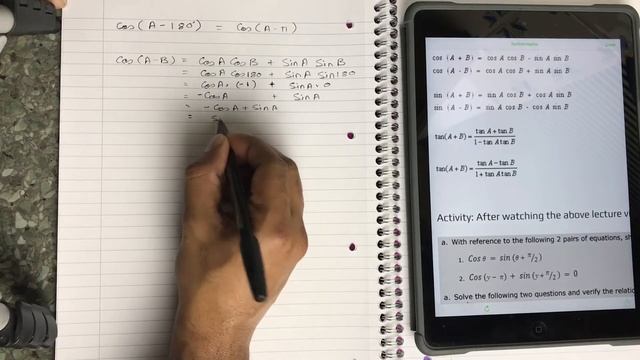 Cos(A - 180°) = Cos(A - π)
Cos(A-B) = CosA CosB + SinA SinB
= CosA Cos180 + SinA Sin180
= CosA · (-1) + SinA · 0
= -CosA + SinA
= - CosA + SinA
= S
cos (A + B) = cos A cos B - sin A sin B
cos (A - B) = cos A cos B + sin A sin B
sin (A + B) = sin A cos B + cos A sin B
sin (A - B) = sin A cos B - cos A sin B
tan(A + B) = (tan A + tan B) / (1 - tan A tan B)
tan(A + B) = (tan A - tan B) / (1 + tan A tan B)
Activity: After watching the above lecture v
a. With reference to the following 2 pairs of equations, sh
1. Cos θ = sin (θ + π/2)
2. Cos (y - π) + sin (y + π/2) = 0
a. Solve the following two questions and verify the relati